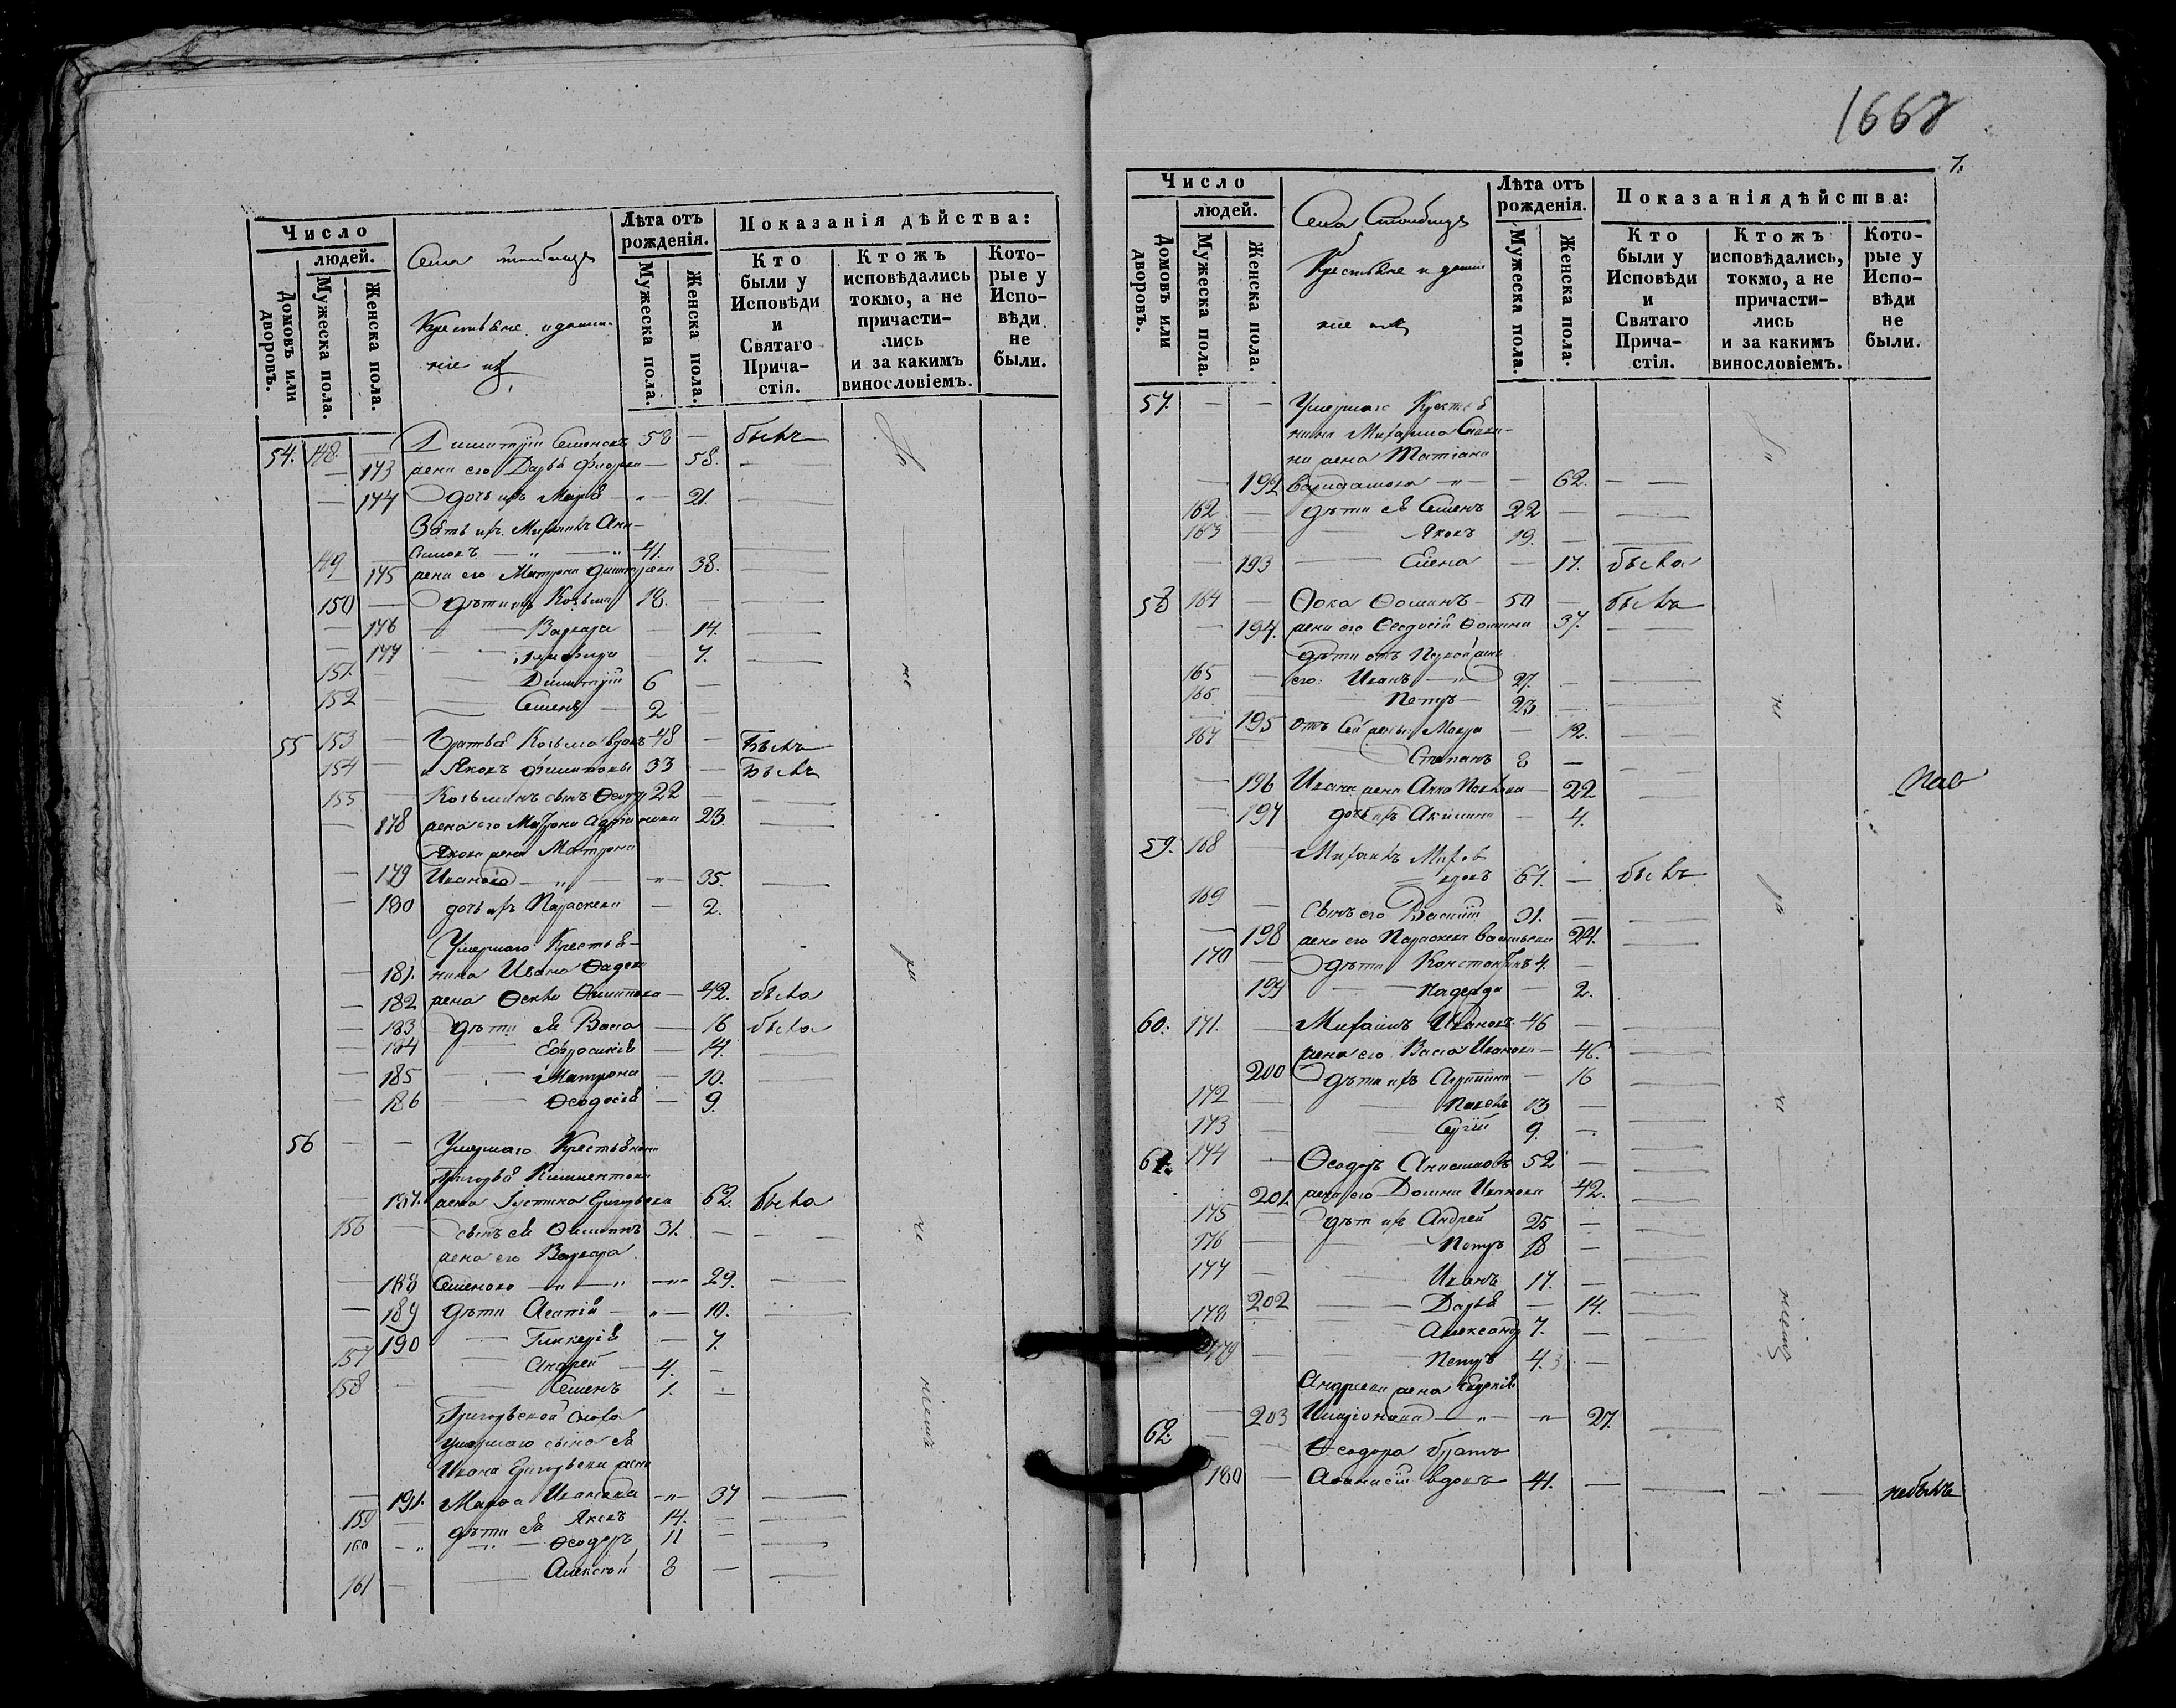 Число
людей.
Домовъ или дворовъ.
Мужеска пола.
Женска пола.
Села
Крестьяне и домаш-
ніе ихъ
Лѣта отъ рожденія.
Мужеска пола.
Женска пола.
Показанія дѣйства:
Кто были у Исповѣди и Святаго Прича- стія.
Ктожъ исповѣдались токмо, а не причасти- лись и за какимъ винословіемъ.
Кото- рые у Испо- вѣди не были.
54. 148. — Димитрій Семеновъ 58 — былъ
— 173 жена его Дарья — 58.
— 174 дочь ихъ Марія — 21.
Зять ихъ Михаилъ Ани-
симовъ 41.
149
175 жена его Матрона Димитріева 38.
150 — дѣти ихъ Козьма 18.
— 176 Варвара — 14.
— 177 — 7.
151. — Димитрій 6 —
152 — Семенъ 2 —
55 153 — Братья Козьма вдовъ 48 — Былъ
154 — и Яковъ Филиповы 33 — Былъ
155 — Козьминъ сынъ Ѳеодоръ 22 —
— 178 жена его Матрона Адріанова 23.
Якова жена Матрона
— 179 Иванова — 35.
— 180 дочь ихъ Параскева — 2.
Умершаго Крестья-
— 181. нина Ивана Ѳадеева
— 182 жена Ѳекла Филипова — 42. была
— 183 дѣти ея Васса — 16 была
— 184 Евфросинія — 14.
— 185 Матрона — 10.
— 186 Ѳеодосія — 9.
56 — — Умершаго Крестьянина
Григорья Климентова
— 187. жена Іустина Григорьева 62. была
156 — сынъ ея Филиппъ 31. —
жена его Варвара
— 188 Семенова — 29.
— 189 дѣти Агапія — 10.
— 190 Гликерія — 7.
157 Андрей 4. —
158 — Семенъ 1. —
Григорьевой сноха
умершаго сына ея
Ивана Григорьева жена
— 191. Марѳа Иванова — 37
159 — дѣти ея Яковъ 14. —
160 — Ѳеодоръ 11 —
161 — Алексѣй 3 —
1668
7.
Число
людей.
Домовъ или дворовъ.
Мужеска пола.
Женска пола.
Села
Крестьяне и домаш-
ніе ихъ
Лѣта отъ рожденія.
Мужеска пола.
Женска пола.
Показанія дѣйства:
Кто были у Исповѣди и Святаго Прича- стія.
Ктожъ исповѣдались, токмо, а не причасти- лись и за какимъ винословіемъ.
Кото- рые у Испо- вѣди не были.
57. — — Умершаго Крестья
нина Михаила
на жена Татіана
— 192 — 62.
162 — дѣти ея Семенъ 22 —
163 — Яковъ 19. —
— 193 Елена — 17. была
58 164 — Ѳока Ѳоминъ 50 — былъ
— 194. жена его Ѳеодосія Ѳомина 37.
дѣти отъ Первой жены
165 — его: Иванъ 27. —
166 — Петръ 23 —
195 отъ Сей жены Мавра — 12.
167 Степанъ 8 —
— 196 Ивана жена Анна Павлова — 22
— 197 дочь ихъ Акилина — 4.
59. 168 — Михаилъ
вдовъ 67. — былъ
169 — сынъ его Василій 31. —
— 198 жена его Параскева Васильева 24.
170 — дѣти Константинъ 4. —
199 Надежда — 2.
60. 171. — Михаилъ Ивановъ 46 —
жена его Васса Иванова — 46.
200 дѣти ихъ Агрипина — 16
172 — Павелъ 13 —
173 — Сергій 9. —
61. 174 — Ѳеодоръ Анисимовъ 52 —
201. жена его Домна Иванова 42.
175 — дѣти ихъ Андрей 25 —
176 — Петръ 18 —
177 — Иванъ 17. —
202 Дарья — 14.
178 — Александръ 7. —
179 — Петръ 4. —
Андреева жена Евдокія
— 203 Иларіонова — 27.
62. — — Ѳеодора братъ
180 — Аѳанасій вдовъ 41. — небылъ